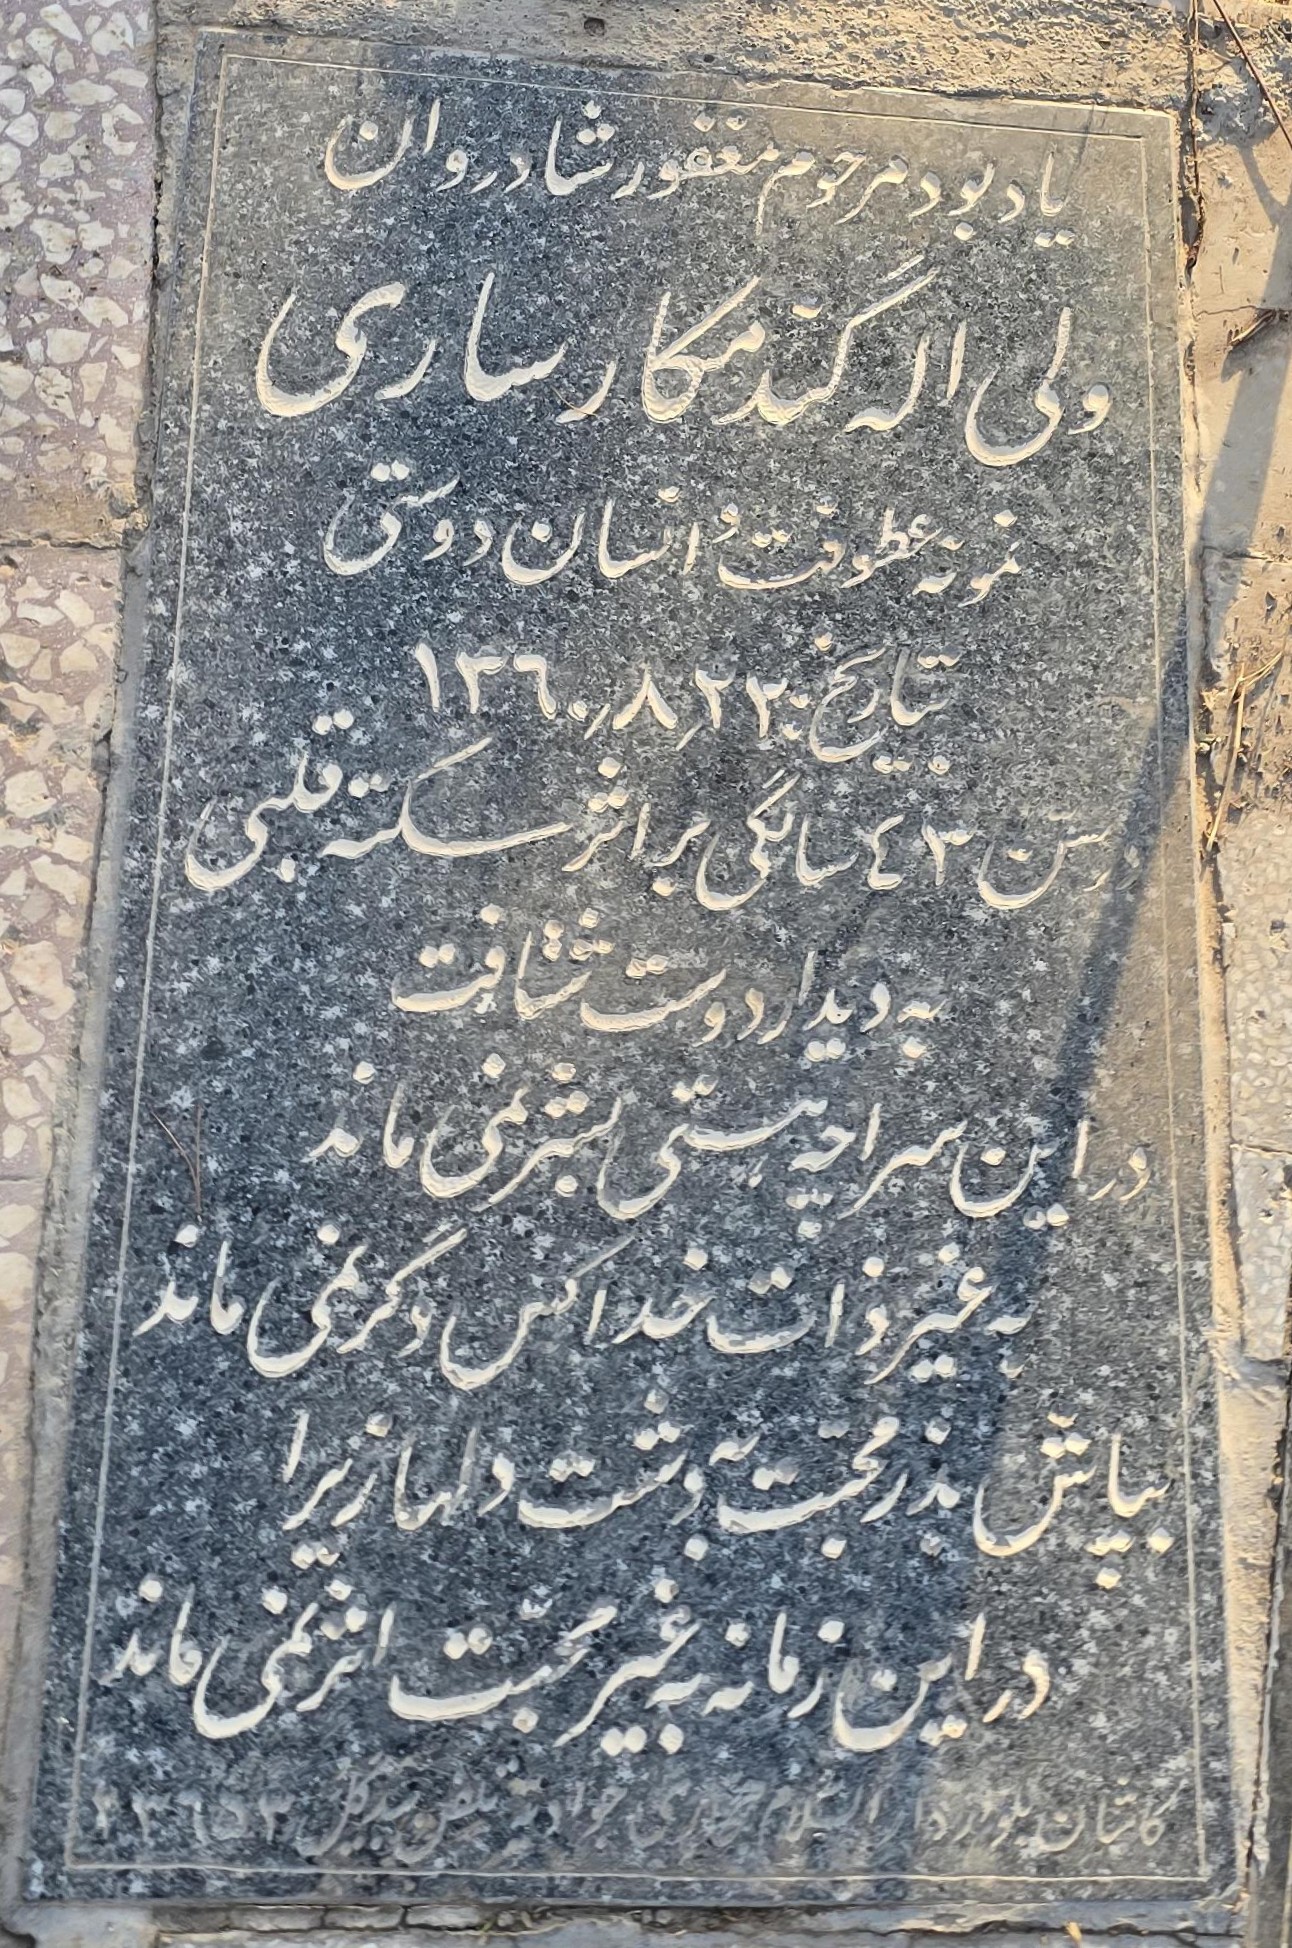 یادبود مرحوم مغفور شادروان
ولی اله گندمکار ساری
نمونه عطوفت و انسان دوستی
بتاریخ: ۲۲ر۸ر۱۳۶۰
در سن ۴۳ سالگی بر اثر سکته قلبی
به دیدار دوست شتافت
در این سراچه هستی بشر نمی ماند
به غیر ذات خدا کس دگر نمی ماند
بپاش بذر محبت به دشت دلها زیرا
در این زمانه به غیر محبت اثر نمی ماند
کاشان بلوار دارالسلام حجاری جوادی تلفن